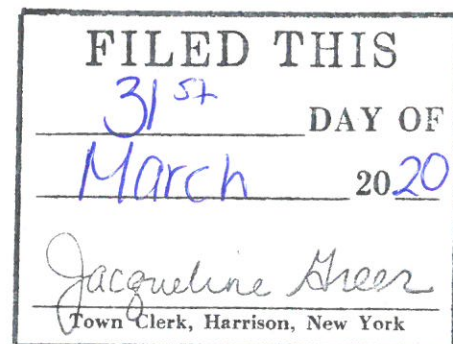 FILED THIS
31st
DAY OF
March 2020
Jacqueline Greer
Town Clerk, Harrison, New York